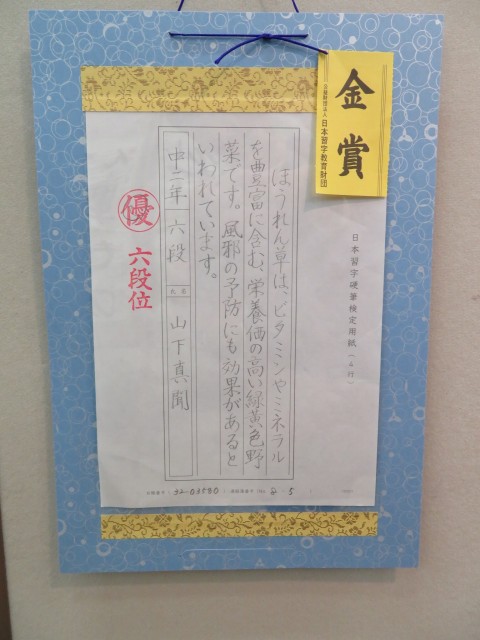 金賞
公益財団法人 日本習字教育財団
日本習字硬筆検定用紙（4行）
ほうれん草は、ビタミンやミネラル
を豊富に含む、栄養価の高い緑黄色野
菜です。風邪の予防にも効果があると
いわれています。
中二年 六段 氏名 山下真聞
優 六段位